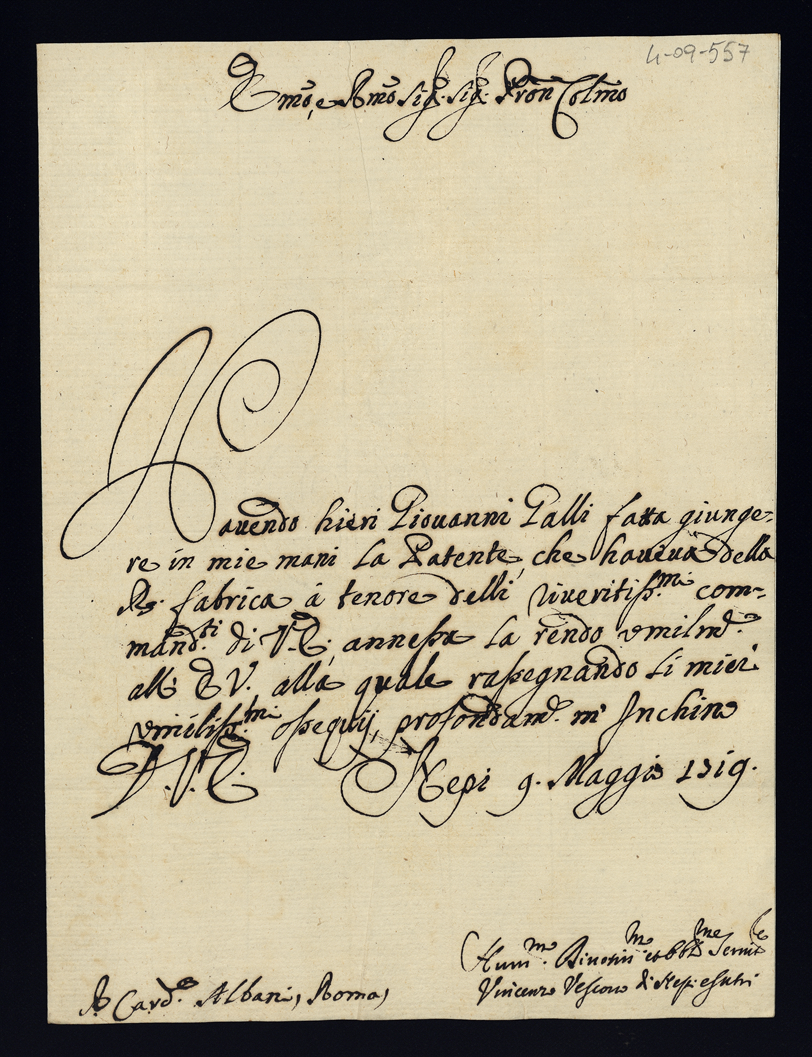 4-09-557
Emo, e Rmo Sig. Sig. Pron Colmo
Hauendo hieri Giouanni Galli fatta giunge=
re in mie mani la Patente, che haueua della
Rs. fabrica à tenore delli riueritiss.mi com=
mand.ti di V.E., annessa la rendo vmilmd.e
all' E V. alla quale rassegnando li miei
vmiliss.mi ossequij, profondamd. m' Inchino
D. V. E. Nepi 9. Maggio 1719.
Hum.mo Diuotiss.mo et obb.mo Seruit.e
Vincenzo Vescouo di Nepi e Sutri
Card.e Albani, Roma,